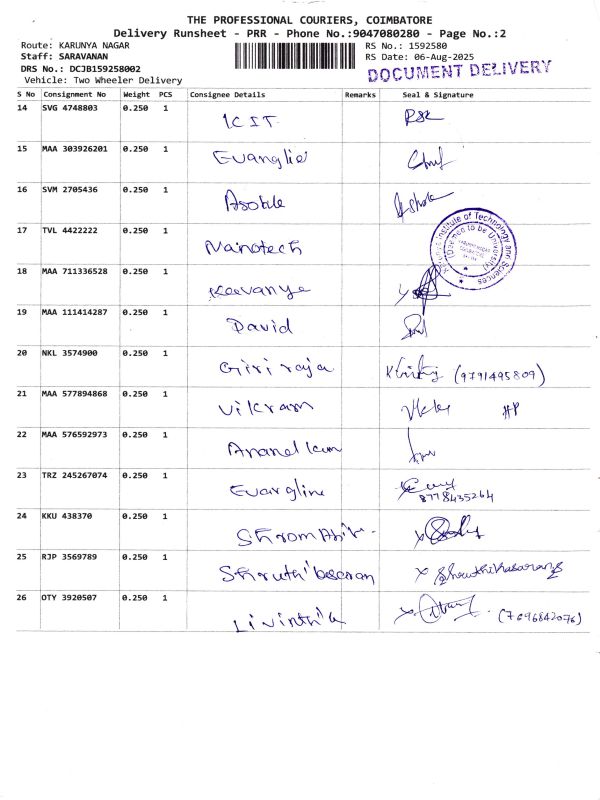 THE PROFESSIONAL COURIERS, COIMBATORE
Delivery Runsheet - PRR - Phone No.:9047080280 - Page No.:2
Route: KARUNYA NAGAR
RS No.: 1592580
Staff: SARAVANAN
RS Date: 06-Aug-2025
DRS No.: DCJB159258002
DOCUMENT DELIVERY
Vehicle: Two Wheeler Delivery
S No Consignment No Weight PCS Consignee Details Remarks Seal & Signature
14 SVG 4748803 0.250 1 ICIT
15 MAA 303926201 0.250 1 Evanglie
16 SVM 2705436 0.250 1 Ashok
17 TVL 4422222 0.250 1 Nanotech
Institute of Technology and Sciences
(Deemed to be University)
18 MAA 711336528 0.250 1 Keevanya
19 MAA 111414287 0.250 1 David
20 NKL 3574900 0.250 1 Giri raja (9791495809)
21 MAA 577894868 0.250 1 Vikram
22 MAA 576592973 0.250 1
23 TRZ 245267074 0.250 1 Evargline 8778435264
24 KKU 438370 0.250 1
25 RJP 3569789 0.250 1
26 OTY 3920507 0.250 1 Livinthia (7696842076)